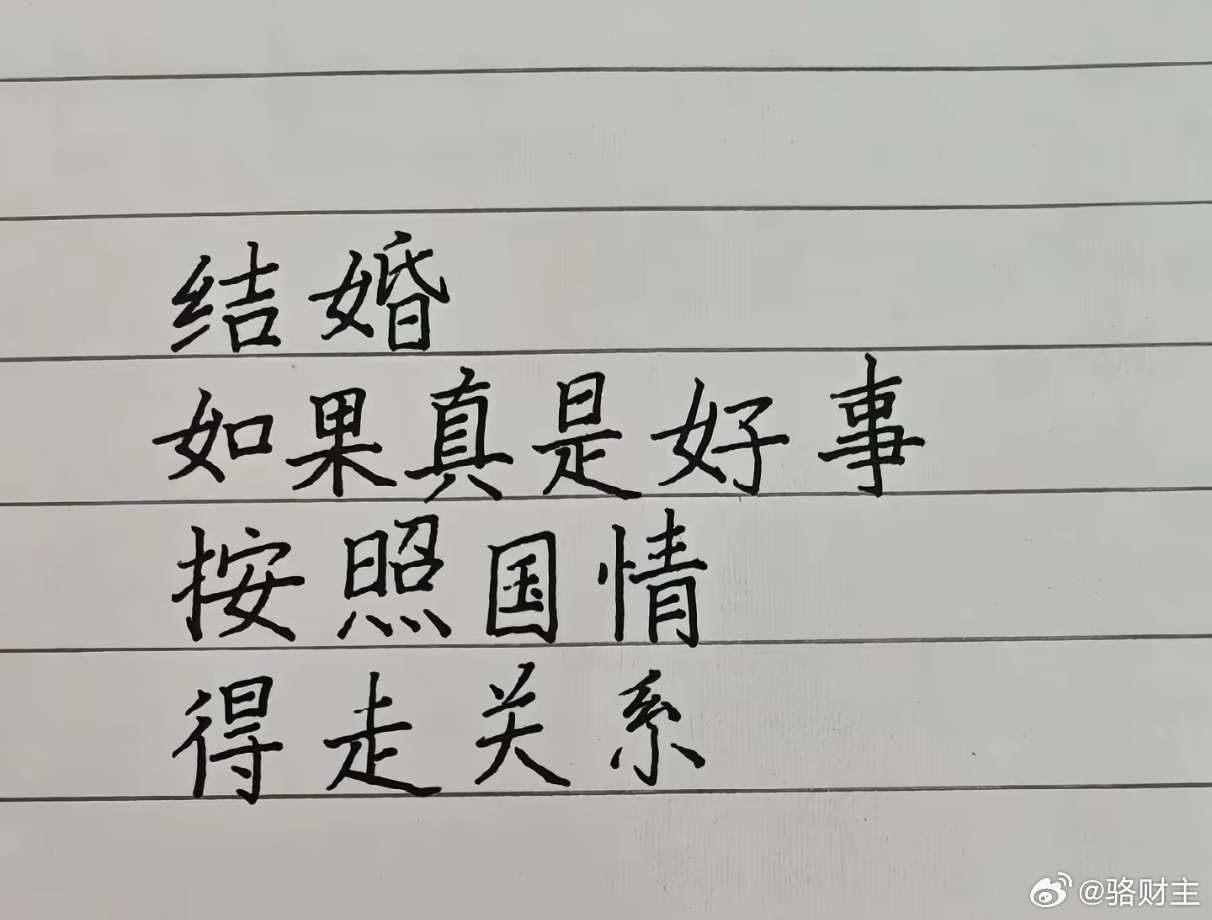 结婚
如果真是好事
按照国情
得走关系
@骆财主